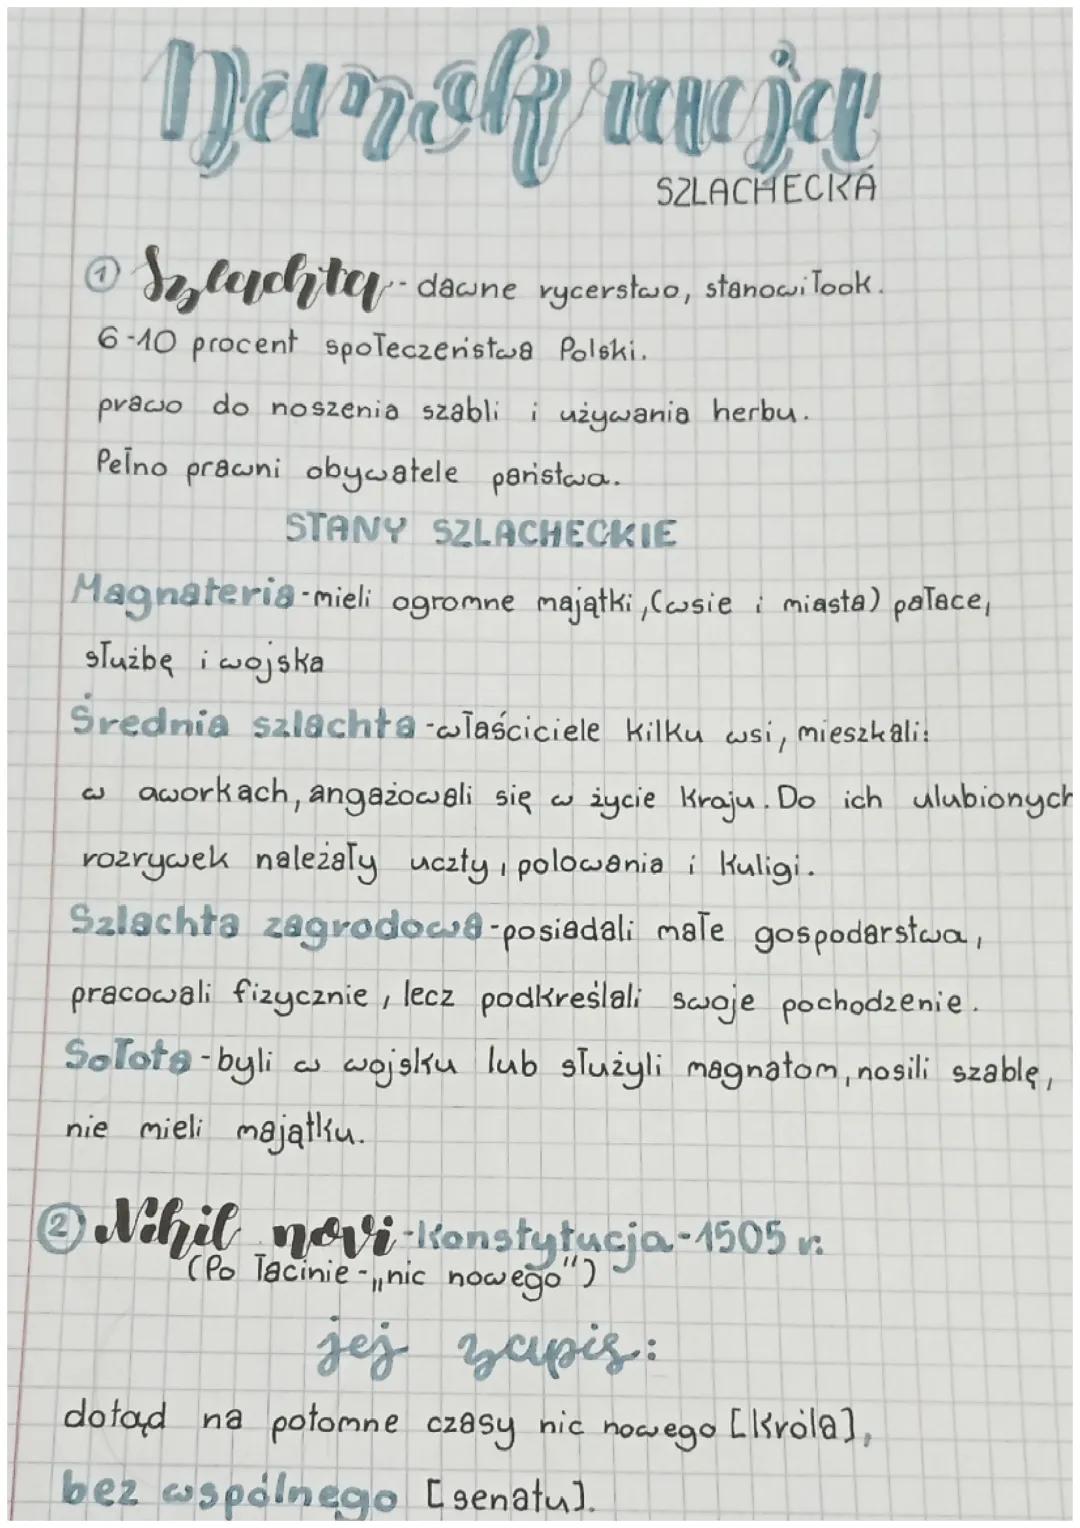 Demokracja
SZLACHECKA
① Szlachta - dawne rycerstwo, stanowił ook.
6-10 procent społeczeństwa Polski.
prawo do noszenia szabli i używania herbu.
Pełno prawni obywatele państwa.
STANY SZLACHECKIE
Magnateria - mieli ogromne majątki, (wsie i miasta) pałace,
służbę i wojska
Średnia szlachta - właściciele kilku wsi, mieszkali:
w dworkach, angażowali się w życie kraju. Do ich ulubionych
rozrywek należały uczty, polowania i kuligi.
Szlachta zagrodowa - posiadali małe gospodarstwa,
pracowali fizycznie, lecz podkreślali swoje pochodzenie.
Gołota - byli w wojsku lub służyli magnatom, nosili szablę,
nie mieli majątku.
② Nihil novi - Konstytucja - 1505 r.
(Po łacinie - „nic nowego")
jej zapis:
dotąd na potomne czasy nic nowego [Króla],
bez wspólnego [senatu].